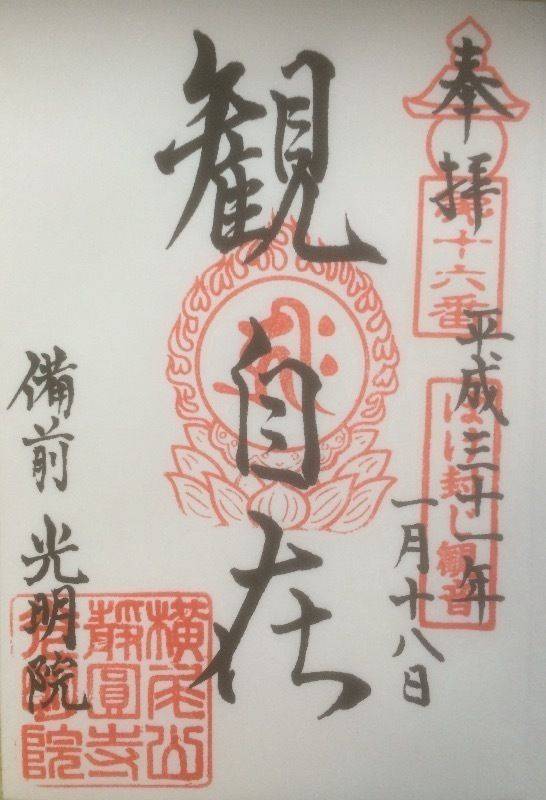 奉拝
第十六番
平成三十一年
ぼけ封じ観音
一月十八日
観自在
備前 光明院
横尾山
静圓寺
光明院